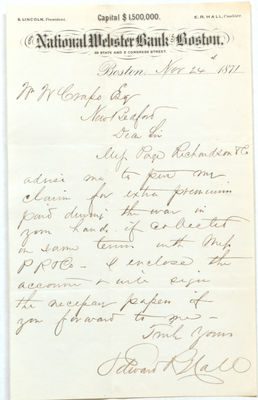 S. LINCOLN, President. Capital $1,500,000. E. R. HALL, Cashier.
The National Webster Bank of Boston.
STATE AND CONGRESS STREET.
Boston, Nov 24th 1871
Wm W Crapo Esq
New Bedford
Dear Sir
Mess Page Richardson & Co
advise me to put my
claim for extra premiums
paid during the war in
your hands, if collected
on same terms with Mess
P R & Co - I enclose the
account & will sign
the necessary papers if
you forward to me -
Truly Yours
Edward R Hall